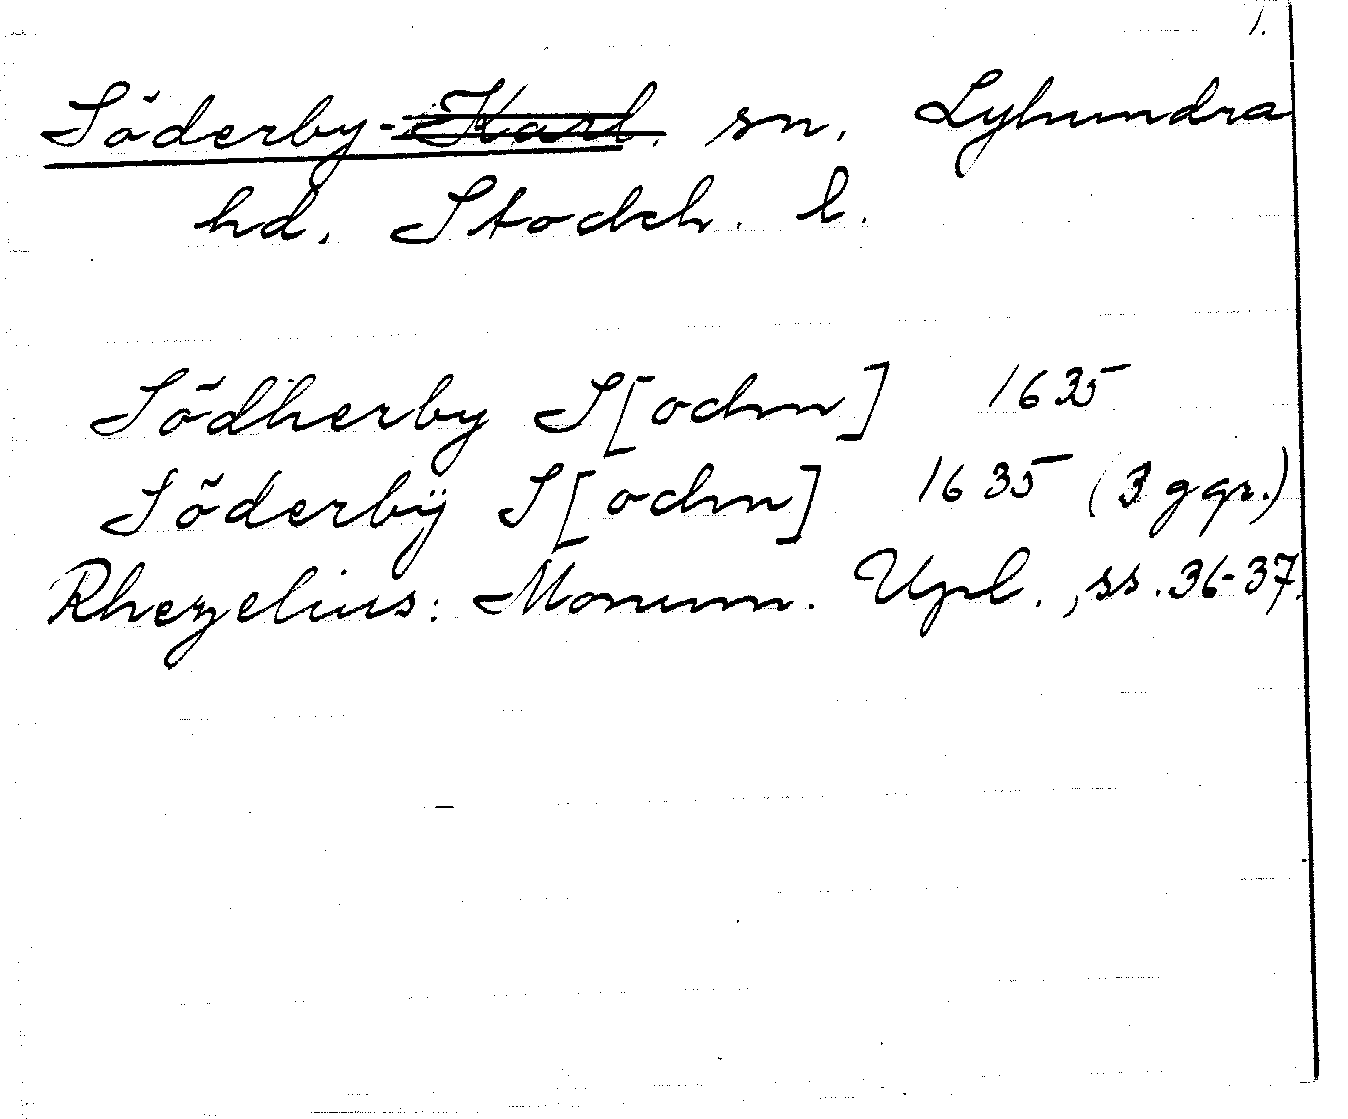 1.
Söderby-Karl. sn. Lyhundra
hd. Stockh. l.
Södherby S[ochn] 1635
Söderbÿ S[ochn] 1635 (3 ggr.)
Rhezelius: Monum. Upl., ss. 36-37.